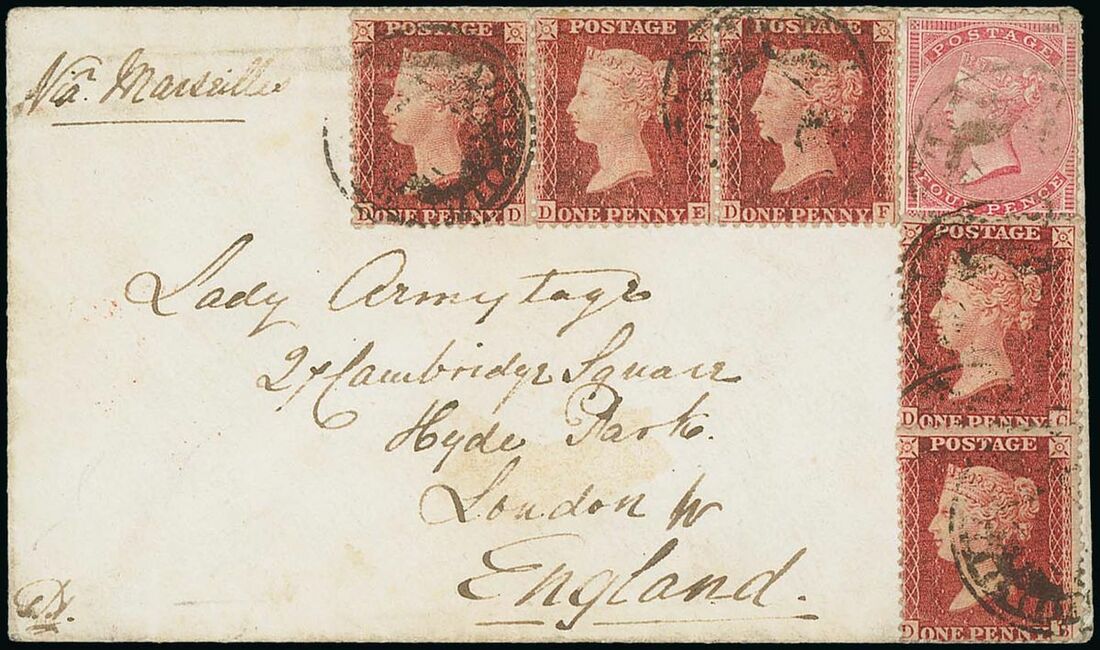 Via Marseilles
POSTAGE
D ONE PENNY D
D ONE PENNY E
POSTAGE
D ONE PENNY F
POSTAGE
FOUR PENCE
Lady Armytage
Cambridge Square
Hyde Park.
London W
England.
POSTAGE
D ONE PENNY G
POSTAGE
D ONE PENNY